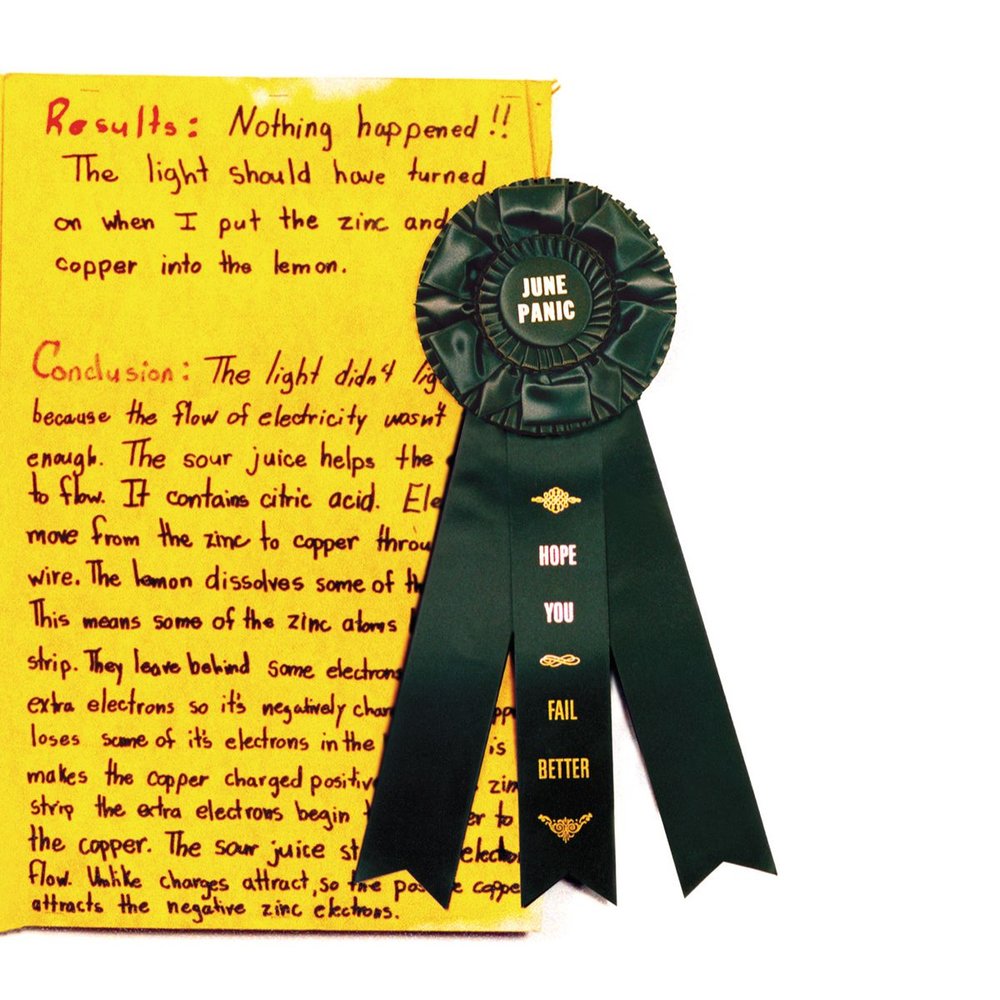 Results: Nothing happened!!
The light should have turned
on when I put the zinc and
copper into the lemon.
Conclusion: The light didn't lig
because the flow of electricity wasn't
enough. The sour juice helps the
to flow. It contains citric acid. Ele
move from the zinc to copper throu
wire. The lemon dissolves some of th
This means some of the zinc atoms
strip. They leave behind some electrons
extra electrons so it's negatively char
loses some of it's electrons in the is
makes the copper charged positive zin
strip the extra electrons begin er to
the copper. The sour juice st electro
flow. Unlike charges attract, so the pos e coppe
attracts the negative zinc electrons.
JUNE
PANIC
HOPE
YOU
FAIL
BETTER